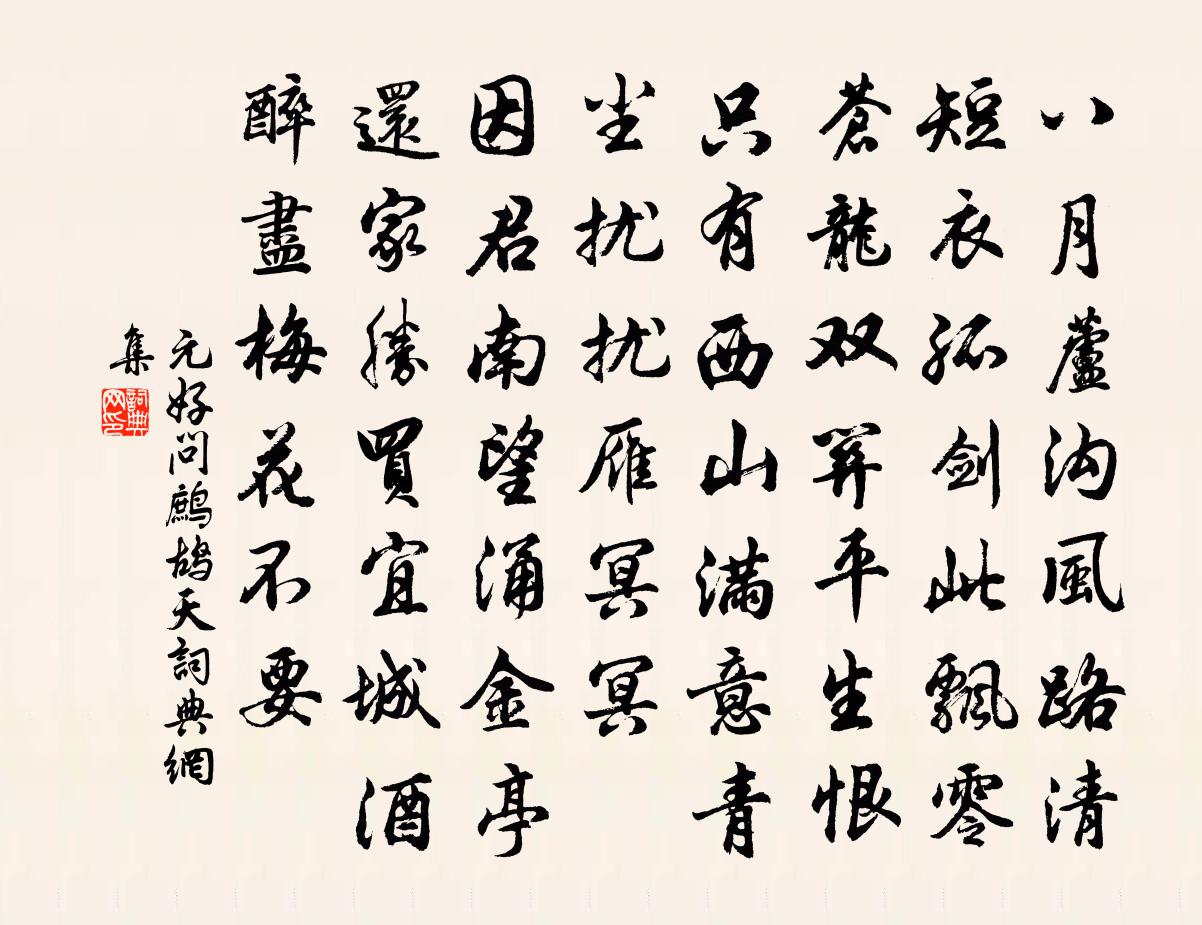 八月蘆沟風路清
短衣孤剑此飄零
蒼龍双闕平生恨
只有西山滿意青
尘扰扰雁冥冥
因君南望涌金亭
還家勝買宜城酒
醉盡梅花不要
元好问鷓鴣天詞典網
集
詞典网印